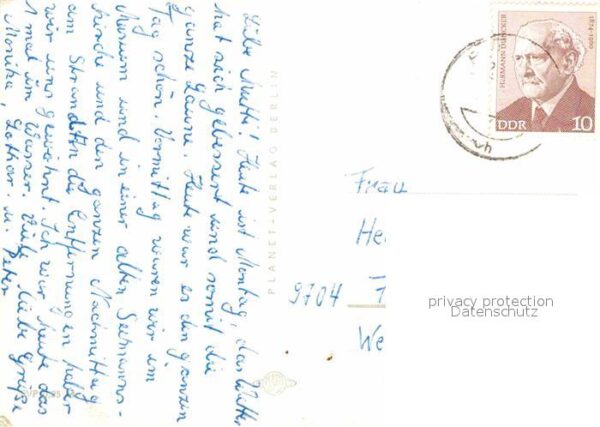 Liebe Mutti! Heute ist Montag, das Wetter
hat sich gebessert und somit die
ganze Laune. Heute war es den ganzen
Tag schön. Vormittag waren wir im
Museum und in einer alten Seemanns-
kirche und den ganzen Nachmittag
am Strand. An die Entfernungen haben
wir uns gewöhnt. Ich war heute das
1 mal im Wasser. Viele liebe Grüße
Monika, Lothar. u. Peter
PLANET-VERLAG BERLIN
HERMANN DUNCKER
1874-1960
DDR 10
Frau
He
9704 T
We
privacy protection
Datenschutz